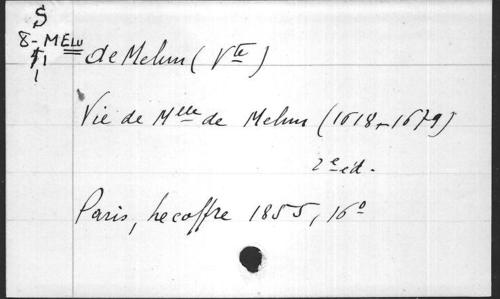 S
8-MELU de Melun (Vte)
1
Vie de Mlle de Melun (1618-1679)
2e éd.
Paris, Lecoffre 1855, 16o